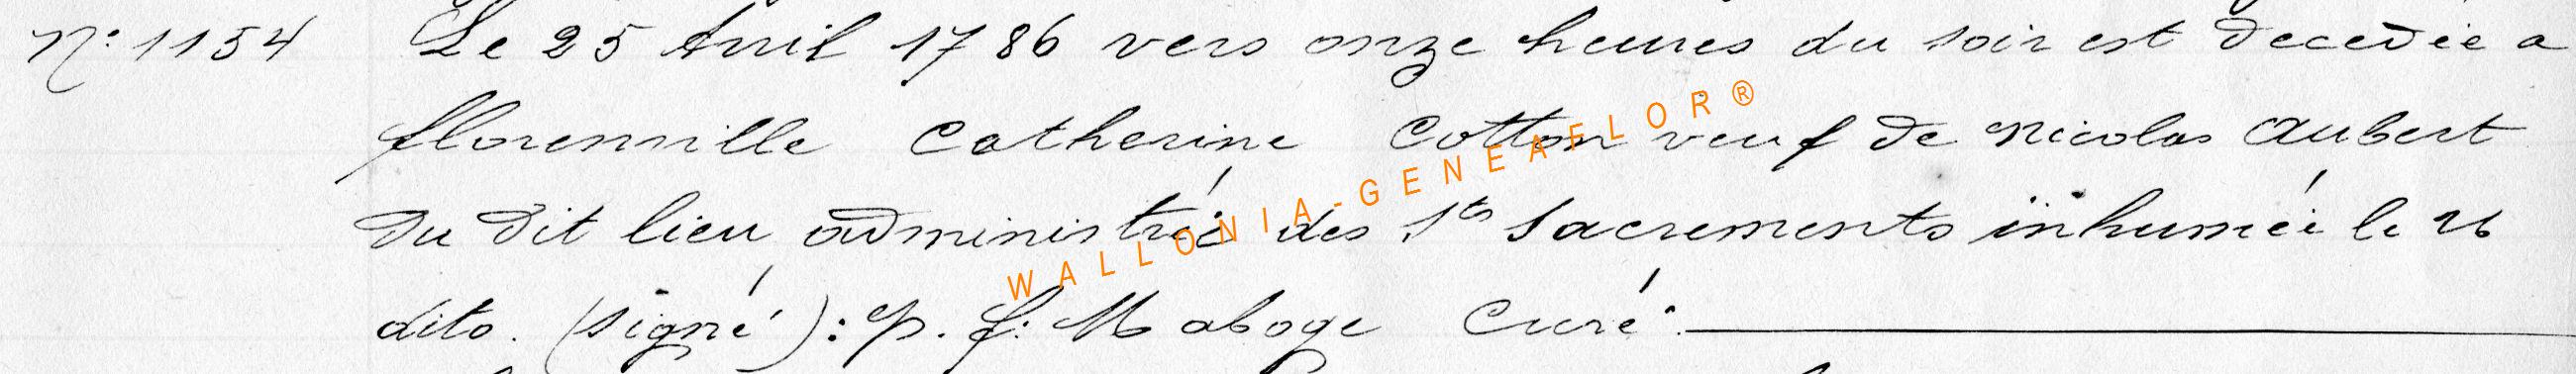 N° 1154 Le 25 Avril 1786 vers onze heures du soir est decedée a
florenville Catherine Cotton veuf de nicolas aubert
du dit lieu administrée des Sts Sacrements inhumée le 26
dito. (signé): p. f: Maboge Curé.
WALLONIA-GENEAFLOR®